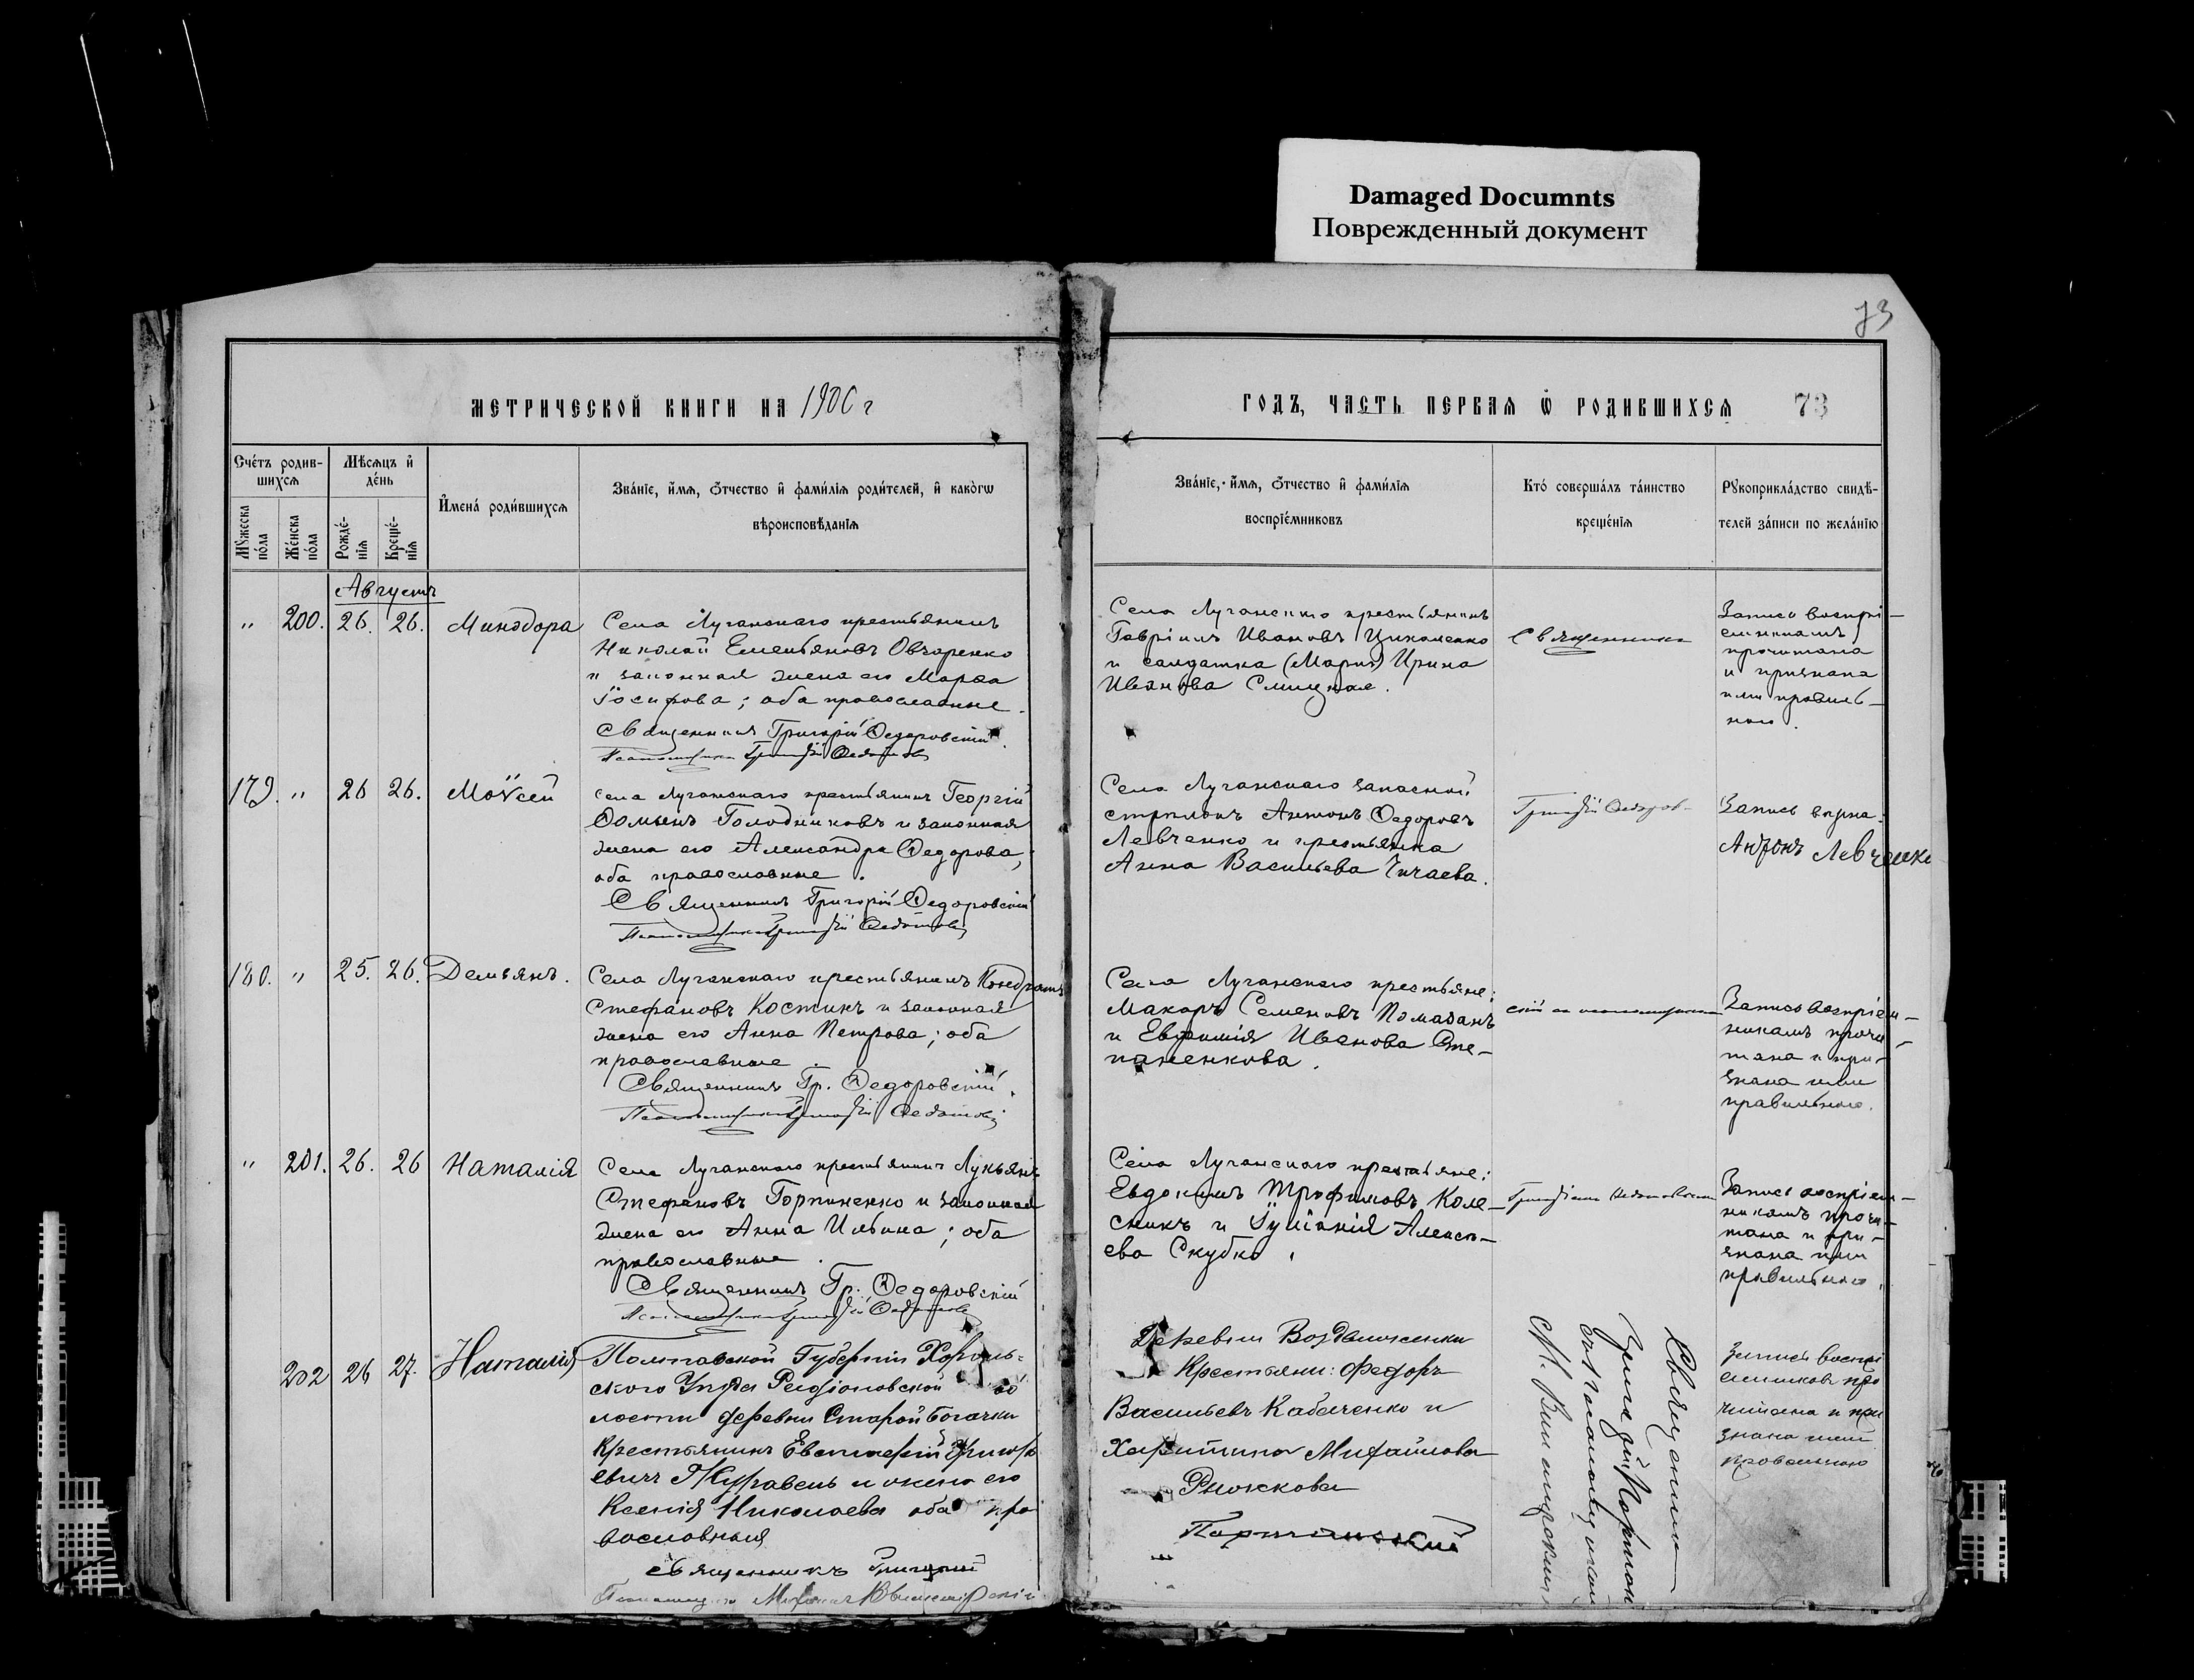 Damaged Documnts
Поврежденный документ
73
МЕТРИЧЕСКОЙ КНИГИ НА 1900 г
ГОДЪ, ЧАСТЬ ПЕРВАЯ Ѿ РОДИВШИХСѦ 73
Сче́тъ родив-
шихсѧ
Мꙋ́жеска по́ла
Же́нска по́ла
Мѣ́сѧцъ и҆ де́нь
Рожде́-нїѧ
Креще́-нїѧ
И҆мена̀ роди́вшихсѧ
Зва́нїе, и҆́мѧ, ѻ҆́тчество и҆ фами́лїѧ роди́телей, и҆ како́гѡ
вѣроисповѣ́данїѧ
Зва́нїе, и҆́мѧ, ѻ҆́тчество и҆ фами́лїѧ
воспрїе́мниковъ
Кто̀ соверша́лъ та́инство
креще́нїѧ
Рꙋкоприкла́дство свидѣ́-
телей за́писи по жела́нїю
Августъ
" 200. 26. 26. Минодора
Села Луганскаго крестьянинъ
Николай Емельяновъ Овчаренко
и законная жена его Марѳа
Іосифова; оба православные.
Священникъ Григорій Ѳедоровскій.
Села Луганского крестьянинъ
Гавріилъ Ивановъ
и салдатка (Марія) Ирина
Иванова
Священникъ
Запись воспрі-
емникамъ
прочитана
и признана
ими правиль-
ною.
179. " 26 26. Моѵсей
Села Луганскаго крестьянинъ Георгій
Ѳоминъ Голодниковъ и законная
жена его Александра Ѳедорова,
оба православные.
Священникъ Григорій Ѳедоровскій
Села Луганскаго запасной
стрѣлокъ Антонъ Ѳедоровъ
Левченко и крестьянка
Анна Васильева Чичаева.
Григорій Ѳедоров-
Запись вѣрна:
Левченко
180. " 25. 26. Демьянъ.
Села Луганскаго крестьянинъ Кондратъ
Стефановъ Костинъ и законная
жена его Анна Петрова; оба
православные.
Священникъ Гр. Ѳедоровскій.
Села Луганскаго крестьяне:
Макаръ Семеновъ Помазанъ
и Евфимія Иванова Сте-
паненкова.
скій съ псаломщикомъ
Запись воспріем-
никамъ прочи-
тана и при-
знана ими
правильною.
" 201. 26. 26 Наталія
Села Луганскаго крестьянинъ Лукьянъ
Стефановъ Горпиненко и законная
жена его Анна Ильина; оба
православные.
Священникъ Гр. Ѳедоровскій
Села Луганскаго крестьяне:
Евдокимъ Трофимовъ Коле-
сникъ и Іуліанія Алексѣ-
ева Скубко.
Запись воспріем-
никамъ прочи-
тана и при-
знана ими
правильною.
202 26 27. Наталія
Полтавской Губерніи Хороль-
ского Уѣзда Родіоновской во
лости деревни Старой Богачки
Крестьянинъ Григорь
евичъ Журавель и жена его
Ксенія Николаева оба пра
вославныя
Священникъ Григорій
Деревни Воздвиженки
Крестьяни: Федоръ
Васильевъ Кабаченко и
Харитина Михайлова
Рыжкова
Священникъ
Григорій
съ Псаломщикомъ
Запись воспрі
емникам про
читана и при
знана ими
правильною